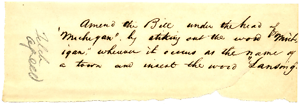 Amend the Bill under the head of
"Michigan", by striking out the word "Mich-
igan" wherever it occurs as the name of
a town and insert the word "Lansing"